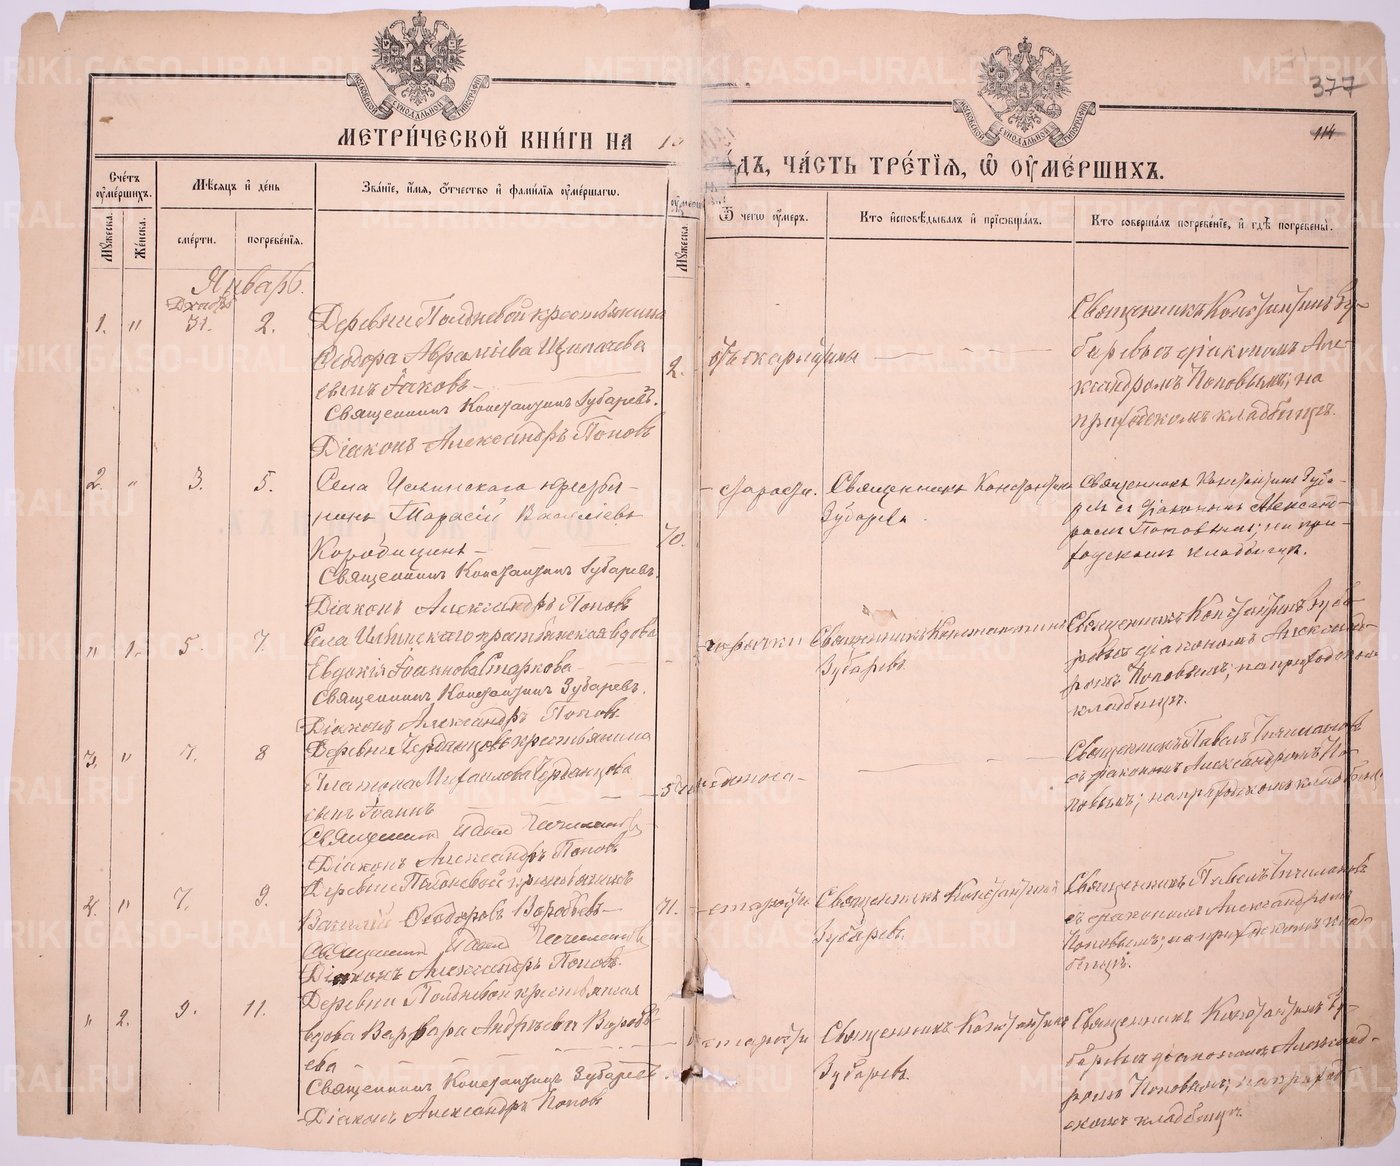 377
114
МЕТРИ́ЧЕСКОЙ КНИ́ГИ НА
ДЪ, ЧА́СТЬ ТРЕ́ТІЯ, Ѿ ОУМЕ́РШИХЪ.
Сче́тъ оумéршихъ.
Мꙋжеска.
Же́нска.
Мѣ́сяцъ и де́нь
сме́рти.
погребе́нія.
Зва́ніе, и́мя, о́тчество и фами́лія оуме́ршагω.
Мꙋжеска.
Ѿ чегω оу́меръ.
Кто и҆сповѣ́дывалъ и҆ прїѡбща́лъ.
Кто соверша́лъ погребе́ніе, и гдѣ̀ погребены̀.
Январь.
1. " Декабрь 31. 2.
Деревни Полдневой крестьянина
Ѳеодора Аврамiева Щипачева
сынъ Iаковъ
Священникъ Константинъ Зубаревъ.
Дiаконъ Александръ Поповъ
2.
Священникъ Константинъ Зу-
баревъ съ дiакономъ Але-
ксандромъ Поповымъ; на
приходскомъ кладбищѣ.
2. " 3. 5.
Села Ильинскаго крестья-
нинъ Тарасiй Васильевъ
Священникъ Константинъ Зубаревъ.
Дiаконъ Александръ Поповъ
70.
старости.
Священникъ Константинъ
Зубаревъ.
Священникъ Константинъ Зуба-
ревъ съ дiакономъ Александ-
ромъ Поповымъ; на при-
ходскомъ кладбищѣ.
" 1. 5. 7.
Села Ильинскаго крестьянская вдова
Евдокiя Iоаннова Старкова
Священникъ Константинъ Зубаревъ.
Дiаконъ Александръ Поповъ
горячки
Священникъ Константинъ
Зубаревъ.
Священникъ Константинъ Зуба-
ревъ съ дiакономъ Александ-
ромъ Поповымъ; на приходском
кладбищѣ.
3. " 7. 8
Деревни крестьянина
Платона Михаилова
сынъ Iоаннъ
Священникъ Павелъ
Дiаконъ Александръ Поповъ
Священникъ Павелъ
съ дiакономъ Александромъ По-
повымъ; на приходскомъ кладбищѣ
4. " 7. 9.
Деревни Полдневой крестьянинъ
Василiй Ѳеодоровъ Воробьевъ
Священникъ Павелъ
Дiаконъ Александръ Поповъ.
71.
старости
Священникъ Константинъ
Зубаревъ.
Священникъ Павелъ
съ дiакономъ Александромъ
Поповымъ; на приходскомъ клад-
бищѣ.
" 2. 9. 11.
Деревни Полдневой крестьянская
вдова Варвара Андреева Воробь-
ева
Священникъ Константинъ Зубаревъ
Дiаконъ Александръ Поповъ
старости
Священникъ Константинъ
Зубаревъ.
Священникъ Константинъ Зу-
баревъ съ дiакономъ Александ-
ромъ Поповымъ; на приход-
скомъ кладбищѣ.
METRIKI.GASO-URAL.RU